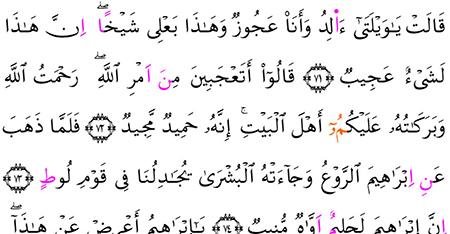 قَالَتْ يَـٰوَيْلَتَىٰٓ ءَا۬لِدُ وَأَنَا۠ عَجُوزٌ وَهَـٰذَا بَعْلِى شَيْخًاۖ اِنَّ هَـٰذَا
لَشَىْءٌ عَجِيبٌ ﴿٧١﴾ قَالُوٓا۟ أَتَعْجَبِينَ مِنَ اَمْرِ اللَّهِۖ رَحْمَتُ اللَّهِ
وَبَرَكَـٰتُهُۥ عَلَيْكُمُۥٓ أَهْلَ الْبَيْتِۚ إِنَّهُۥ حَمِيدٌ مَّجِيدٌ ﴿٧٢﴾ فَلَمَّا ذَهَبَ
عَنِ اِبْرَٰهِيمَ الرَّوْعُ وَجَآءَتْهُ الْبُشْرَىٰ يُجَـٰدِلُنَا فِى قَوْمِ لُوطٍ ﴿٧٣﴾
اِنَّ إِبْرَٰهِيمَ لَحَلِيمٌ اَوَّٰهٌ مُّنِيبٌ ﴿٧٤﴾ يَـٰٓإِبْرَٰهِيمُ أَعْرِضْ عَنْ هَـٰذَآۖ